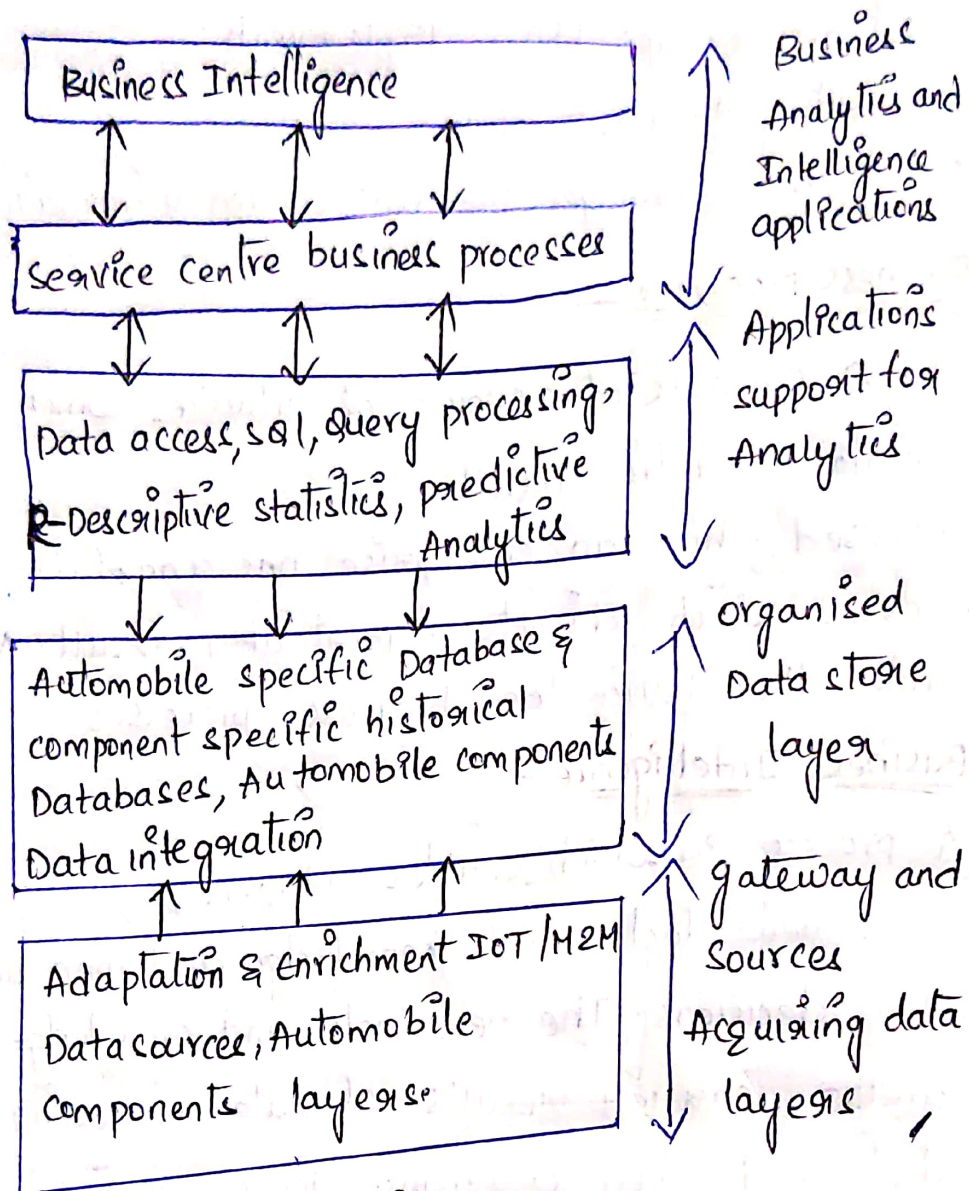 Business Intelligence
Service centre business processes
Data access, SQl, Query processing,
Descriptive statistics, predictive
Analytics
Automobile specific Database &
component specific historical
Databases, Automobile components
Data integration
Adaptation & Enrichment IOT/M2M
Data sources, Automobile
components layers.
Business
Analytics and
Intelligence
applications
Applications
support for
Analytics
organised
Data store
layer
gateway and
Sources
Acquiring data
layers